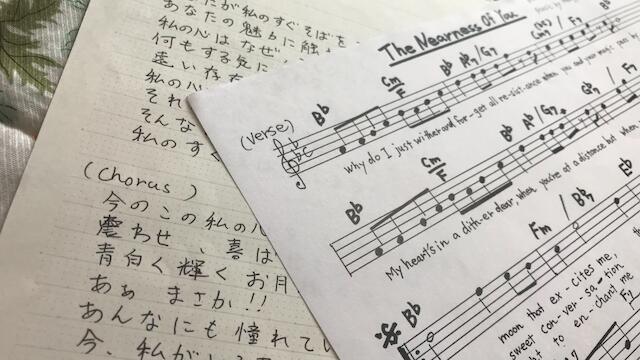 たが私のすぐそばを
あなたの魅力に触
私の心はなぜ
何もする気に
遠い存在
私の心
それ
そんな
私のす
(Chorus)
今のこの私の心
震わせ、喜ば
青白く輝くお月
あぁ まさか!!
あんなにも憧れてい
今、私が
The Nearness Of You
(Verse)
Bb Cm/F Bb Ab/G7 Cm7 / F7
why do I just wither and for-get all re-sist-ance when you and your magic pass by
Bb Cm/F Bb Ab/G7 F7
My heart's in a dith-er dear, when you're at a distance but when
Bb Fm / Bb7 Eb
moon that ex-cites me,
sweet con-ver-sa-tion
to en-chant me
F7